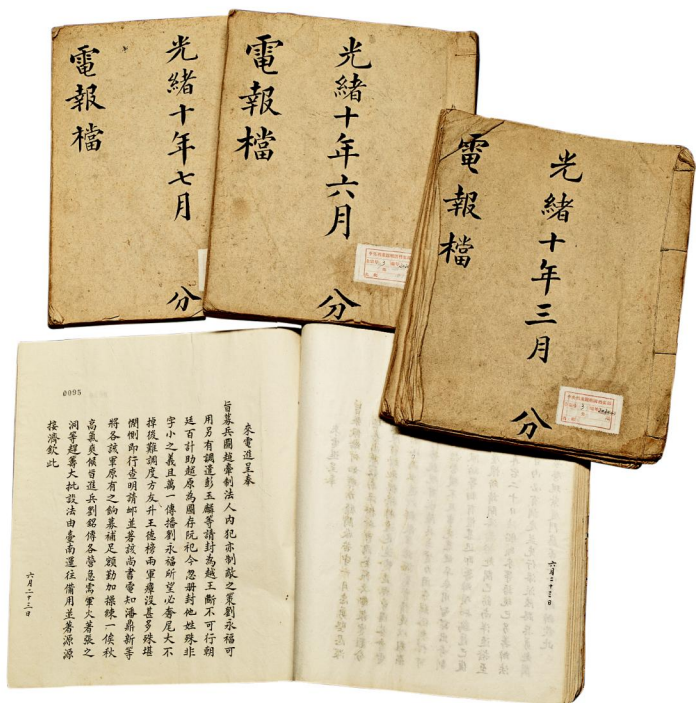 光緒十年七月
分
電報檔
光緒十年六月
分
電報檔
光緒十年三月
分
電報檔
來電進呈奉
旨募兵圖越牽制法人內犯亦制敵之策劉永福可
用另有調遣彭玉麟等請封為越王斷不可行朝
廷百計助越原為國存阮祀今忽冊封他姓殊非
字小之義且萬一傳播劉永福所望必奢尾大不
掉後難調度方友升王德榜兩軍瘴沒甚多殊堪
憫惻即行查明請卹並著該尚書電知潘鼎新等
將各該軍原有之餉募補足額勤加操練一俟秋
高氣爽候旨進兵劉銘傳各營急需軍火著張之
洞等趕籌大批設法由臺南運往備用並著源源
接濟欽此
六月二十三日
0095